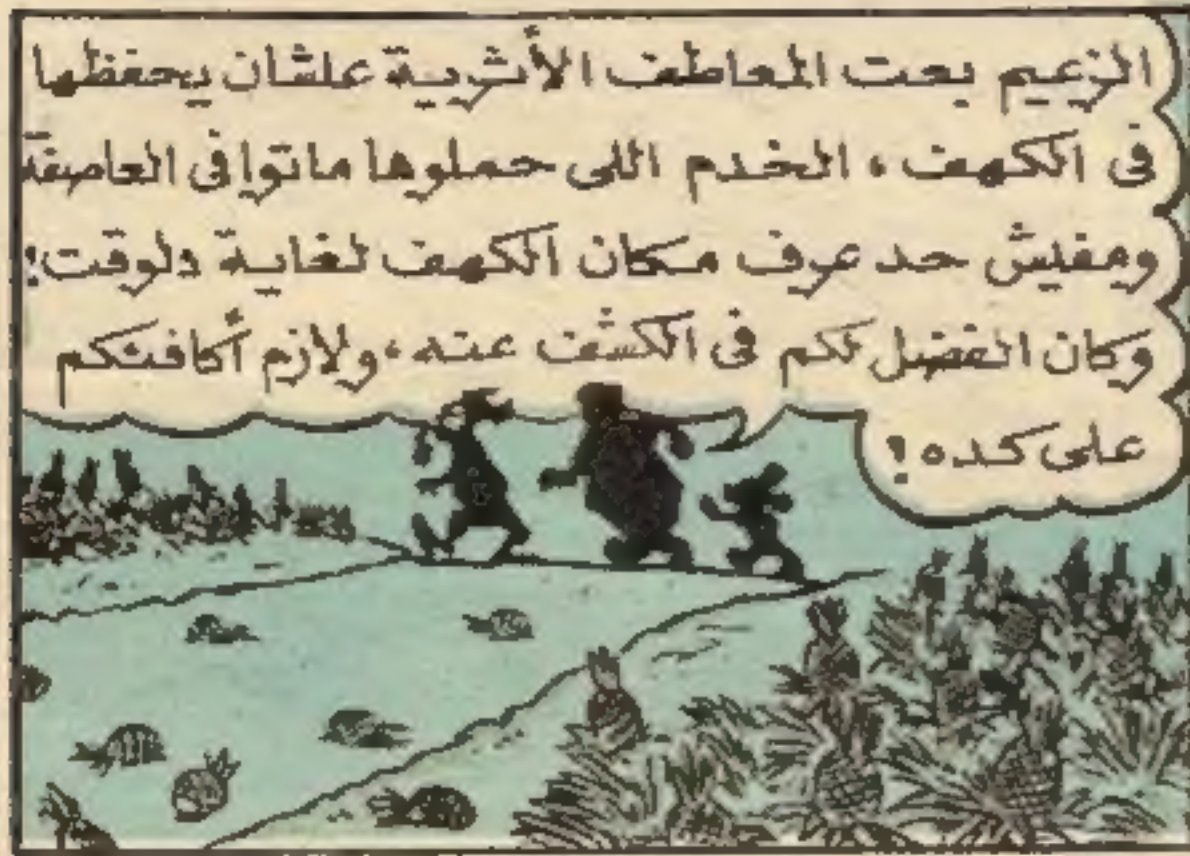 الزعيم بعت المعاطف الأثرية علشان يحفظها
فى الكهف ، الخدم اللى حملوها ماتوا فى العاصفة
ومفيش حد عرف مكان الكهف لغاية دلوقت !
وكان الفضل لكم فى الكشف عنه ، ولازم أكافئكم
على كده !